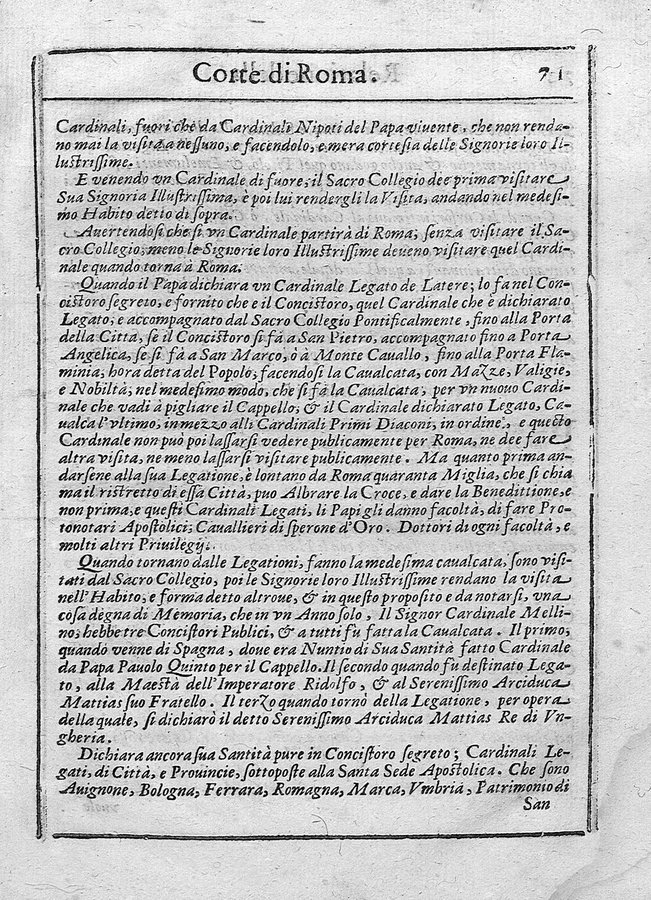 Corte di Roma. 71
Cardinali, fuori che da Cardinali Nipoti del Papa viuente, che non renda-
no mai la visita a nessuno, e facendolo, e mera cortesia delle Signorie loro Il-
lustrissime.
E venendo vn Cardinale di fuore, il Sacro Collegio dee prima visitare
Sua Signoria Illustrissima, e poi lui rendergli la Visita, andando nel medesi-
mo Habito detto di sopra.
Auertendosi che si vn Cardinale partirà di Roma, senza visitare il Sa-
cro Collegio, meno le Signorie loro Illustrissime deueno visitare quel Cardi-
nale quando torna à Roma.
Quando il Papa dichiara vn Cardinale Legato de Latere; lo fa nel Con-
cistoro segreto, e fornito che e il Concistoro, quel Cardinale che è dichiarato
Legato, e accompagnato dal Sacro Collegio Pontificalmente, fino alla Porta
della Città, se il Concistoro si fà a San Pietro, accompagnato fino a Porta
Angelica, se si fà a San Marco, ò à Monte Cauallo, fino alla Porta Fla-
minia, hora detta del Popolo, facendosi la Caualcata, con Mazze, Valigie,
e Nobiltà, nel medesimo modo, che si fà la Caualcata, per vn nuouo Cardi-
nale che vadi à pigliare il Cappello, & il Cardinale dichiarato Legato, Ca-
ualca l'vltimo, in mezzo alli Cardinali Primi Diaconi, in ordine, e questo
Cardinale non può poi lassarsi vedere publicamente per Roma, ne dee fare
altra visita, ne meno lassarsi visitare publicamente. Ma quanto prima an-
darsene alla sua Legatione, è lontano da Roma quaranta Miglia, che si chia
ma il ristretto di essa Città, puo Albrare la Croce, e dare la Benedittione, e
non prima, e questi Cardinali Legati, li Papi gli danno facoltà, di fare Pro-
tonotari Apostolici; Cauallieri di sperone d'Oro. Dottori di ogni facoltà, e
molti altri Priuilegij.
Quando tornano dalle Legationi, fanno la medesima caualcata, sono visi-
tati dal Sacro Collegio, poi le Signorie loro Illustrissime rendano la visita
nell'Habito, e forma detto altroue, & in questo proposito e da notarsi, vna
cosa degna di Memoria, che in vn Anno solo, Il Signor Cardinale Melli-
no, hebbe tre Concistori Publici, & a tutti fù fatta la Caualcata. Il primo,
quando venne di Spagna, doue era Nuntio di Sua Santità fatto Cardinale
da Papa Pauolo Quinto per il Cappello. Il secondo quando fù destinato Lega-
to, alla Maestà dell'Imperatore Ridolfo, & al Serenissimo Arciduca
Mattias suo Fratello. Il terzo quando tornò della Legatione, per opera
della quale, si dichiarò il detto Serenissimo Arciduca Mattias Re di Vn-
gheria.
Dichiara ancora sua Santità pure in Concistoro segreto; Cardinali Le-
gati, di Città, e Prouincie, sottoposte alla Santa Sede Apostolica. Che sono
Auignone, Bologna, Ferrara, Romagna, Marca, Vmbria, Patrimonio di
San